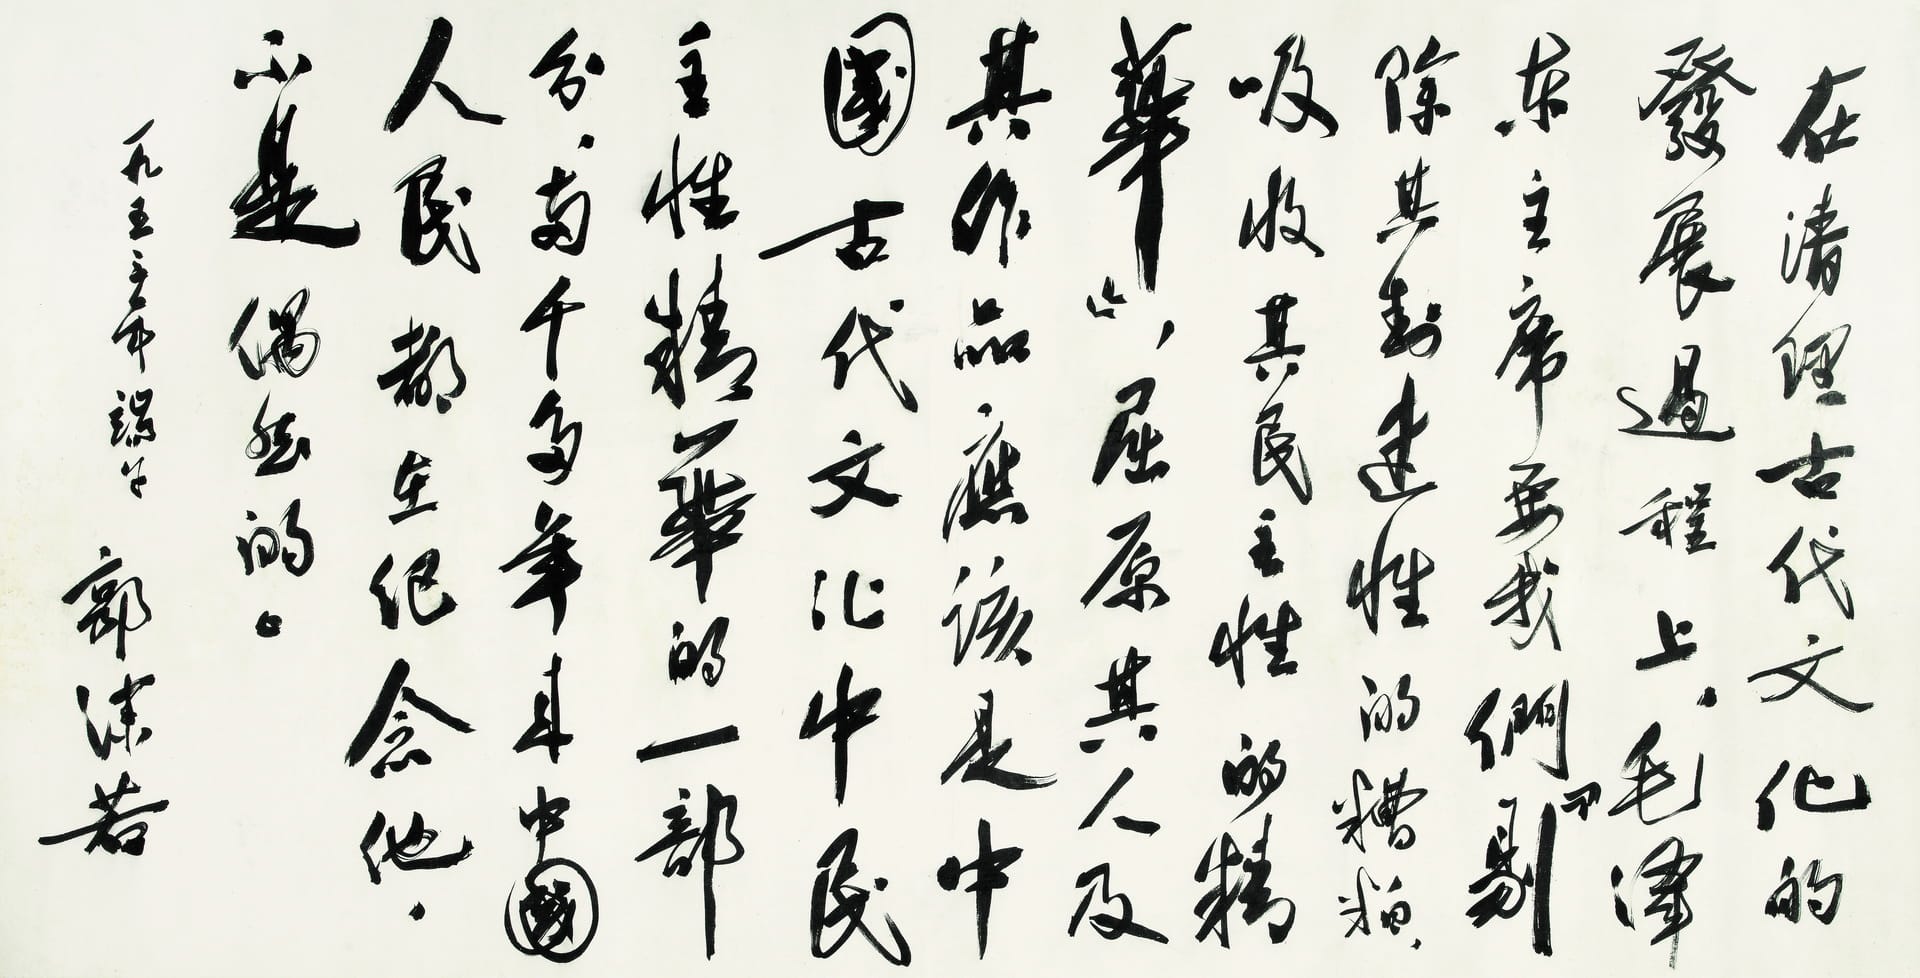 在清理古代文化的
發展過程上，毛澤
東主席要我們「剔
除其封建性的糟粕，
吸收其民主性的精
華」，屈原其人及
其作品應該是中
國古代文化中民
主性精華的一部
分，两千多年来中國
人民都在纪念他，
不是偶然的。
一九五三年端午
郭沫若